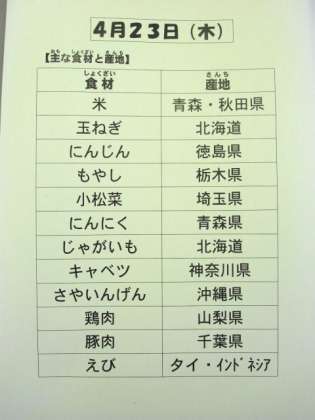 4月23日（木）
【主な食材と産地】
食材 産地
米 青森・秋田県
玉ねぎ 北海道
にんじん 徳島県
もやし 栃木県
小松菜 埼玉県
にんにく 青森県
じゃがいも 北海道
キャベツ 神奈川県
さやいんげん 沖縄県
鶏肉 山梨県
豚肉 千葉県
えび タイ・インドネシア